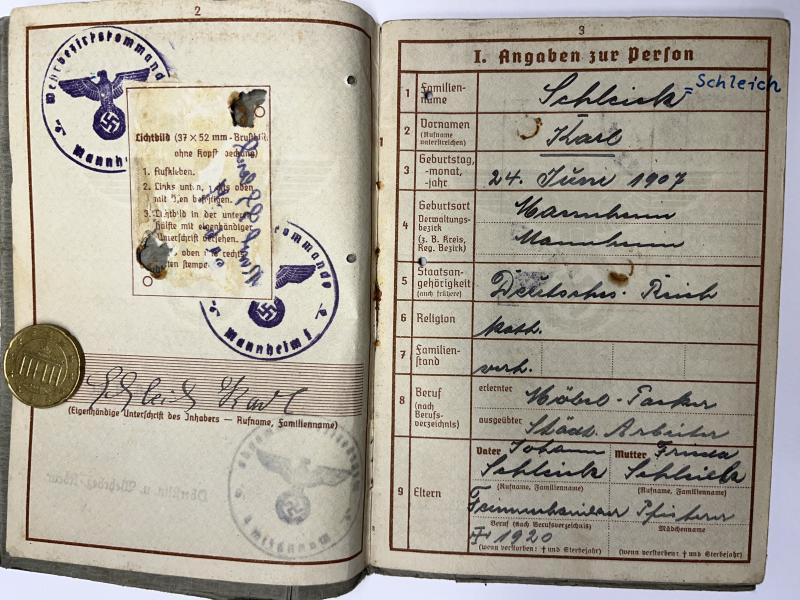 2
Wehrbezirkskommando
Mannheim
Lichtbild (37 × 52 mm - Brustbild,
ohne Kopfbedeckung)
1. Aufkleben.
2. Links unten, rechts oben
mit Ösen befestigen.
3. Lichtbild in der unteren
Hälfte mit eigenhändiger
Unterschrift versehen.
Mannheim I
Schleich Karl
(Eigenhändige Unterschrift des Inhabers — Rufname, Familienname)
3
I. Angaben zur Person
1 Familienname Schleich = Schleich
2 Vornamen (Rufname unterstreichen) Karl
3 Geburtstag, -monat, -jahr 24. Juni 1907
4 Geburtsort Mannheim
Verwaltungsbezirk (z. B. Kreis, Reg. Bezirk) Mannheim
5 Staatsangehörigkeit (auch frühere) Deutsches Reich
6 Religion kath.
7 Familienstand verh.
8 Beruf (nach Berufsverzeichnis) erlernter Möbel-Packer
ausgeübter Städt. Arbeiter
9 Eltern
Vater Johann Mutter Frieda
Schleich Schleich
(Rufname, Familienname) (Rufname, Familienname)
Pfisterer
Beruf (nach Berufsverzeichnis) Mädchenname
† 1920
(wenn verstorben: † und Sterbejahr) (wenn verstorben: † und Sterbejahr)